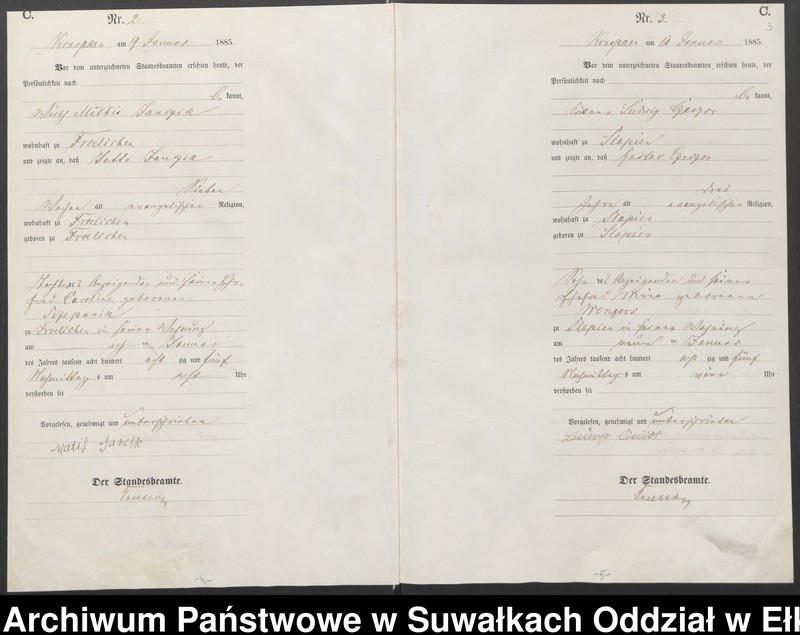 C.
Nr. 2.
Konopken am 9 Januar 1885.
Vor dem unterzeichneten Standesbeamten erschien heute, der
Persönlichkeit nach
be kannt,
Wirth Mattis
wohnhaft zu Froelichen
und zeigte an, daß Jette
Sieben
Wochen alt evangelischer Religion,
wohnhaft zu Froelichen
geboren zu Froelichen
Tochter des Anzeigenden und seiner Ehe-
frau Caroline geborenen
zu Froelichen in seiner Wohnung
am acht ten Januar
des Jahres tausend acht hundert acht zig und fünf
Nachmittag s um acht Uhr
verstorben sei
Vorgelesen, genehmigt und unterschrieben
Der Standesbeamte.
-4-
C.
3
Nr. 3.
Konopken am 10 Januar 1885.
Vor dem unterzeichneten Standesbeamten erschien heute, der
Persönlichkeit nach
be kannt,
Ludwig
wohnhaft zu Slapien
und zeigte an, daß Gustav
drei
Jahre alt evangelischer Religion,
wohnhaft zu Slapien
geboren zu Slapien
Sohn des Anzeigenden und seiner
Ehefrau Mine geborenen
zu Slapien in seiner Wohnung
am neun ten Januar
des Jahres tausend acht hundert acht zig und fünf
Nachmittag s um vier Uhr
verstorben sei
Vorgelesen, genehmigt und unterschrieben
Der Standesbeamte.
-5-
Archiwum Państwowe w Suwałkach Oddział w Ełk